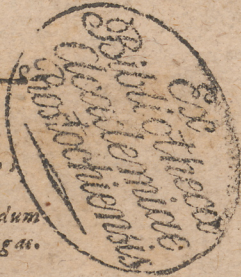 Ex
Bibliotheca
Academiae
Rostochiensis
dum
gat.